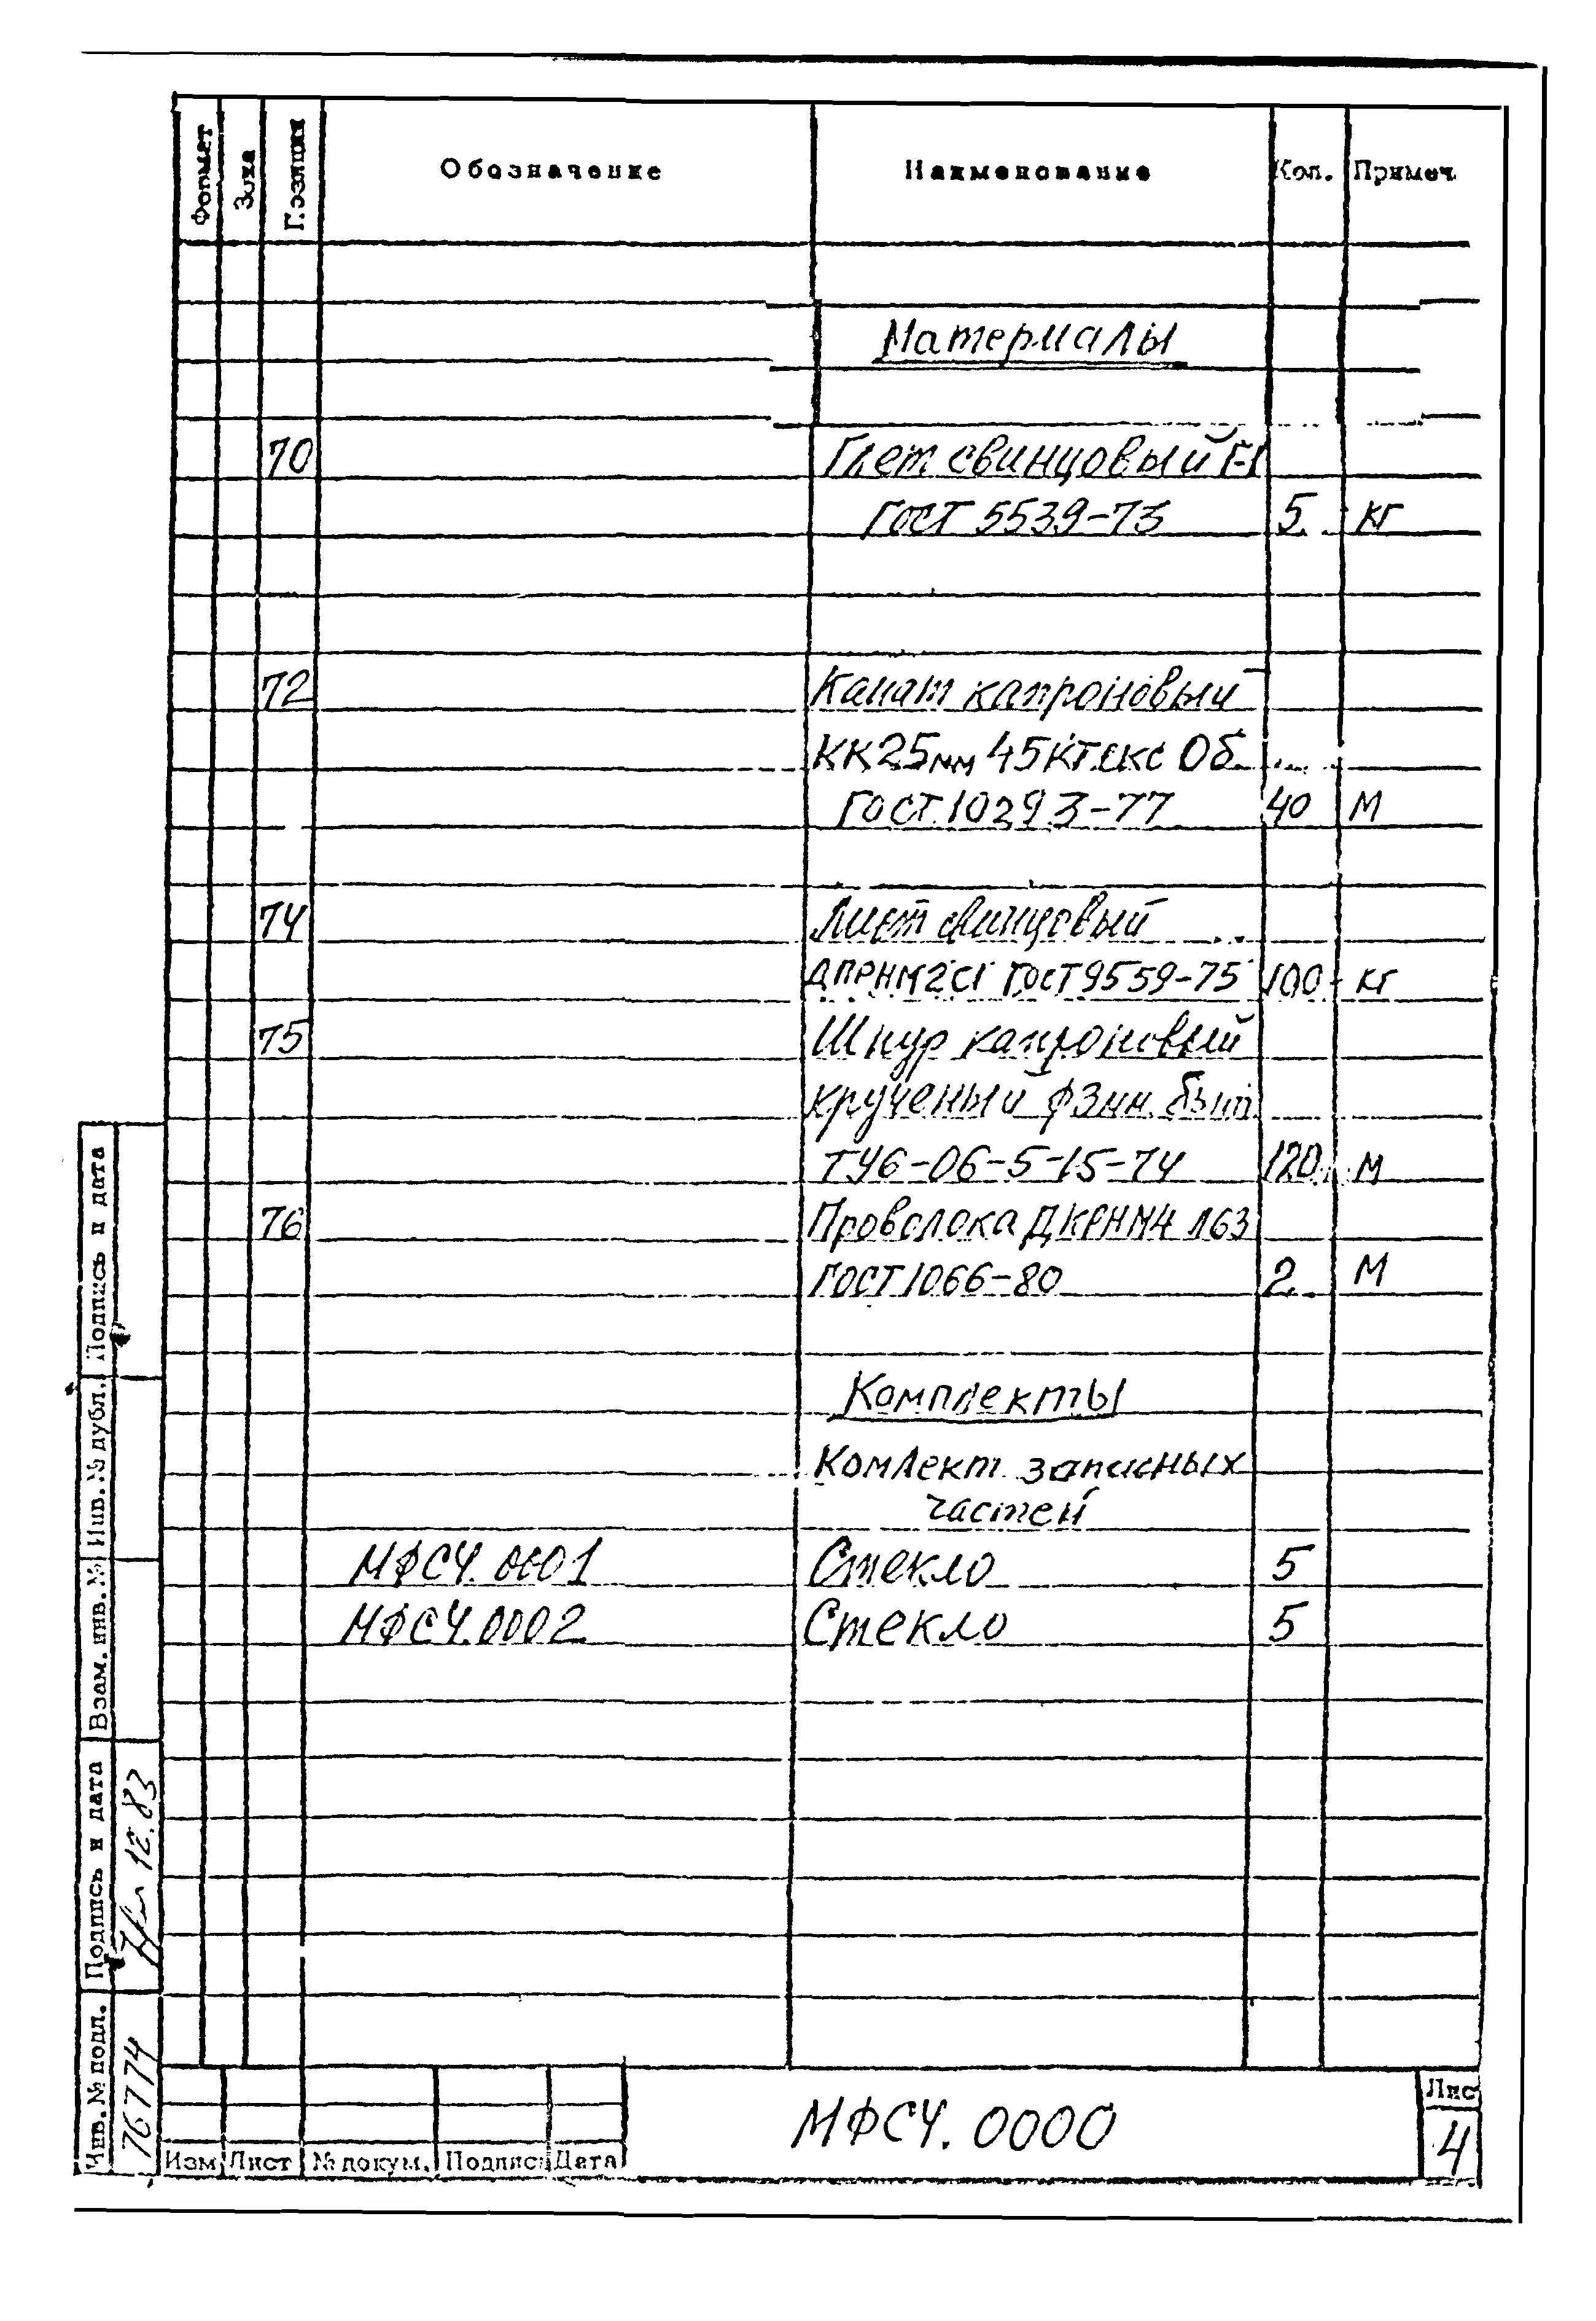 Формат Зона Позиция Обозначение Наименование Кол. Примеч.
Материалы
70 Глет свинцовый Г-1
ГОСТ 5539-73 5 кг
72 Канат капроновый
КК25мм 45Ктекс Об.
ГОСТ 10293-77 40 м
74 Лист свинцовый
ДПРНМ2С1 ГОСТ9559-75 100 кг
75 Шнур капроновый
крученый ф3мм
ТУ6-06-5-15-74 120 м
76 Проволока ДКРНМ4 Л63
ГОСТ1066-80 2 м
Комплекты
Комлект запасных
частей
МФСЧ.0001 Стекло 5
МФСЧ.0002 Стекло 5
Подпись и дата
Инв. № дубл.
Взам. инв. №
Подпись и дата
12.83
Инв. № подл.
76774
МФСЧ. 0000
Лис
4
Изм Лист № докум. Подпис Дата